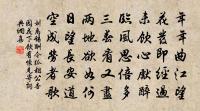 年年曲江望
花發即經過
未飲心先醉
臨風思倍多
三春看又盡
兩地欲如何
日望長安道
空成勞者歌
劉禹錫酬令狐相公杏
園花下飲有懷見寄詩